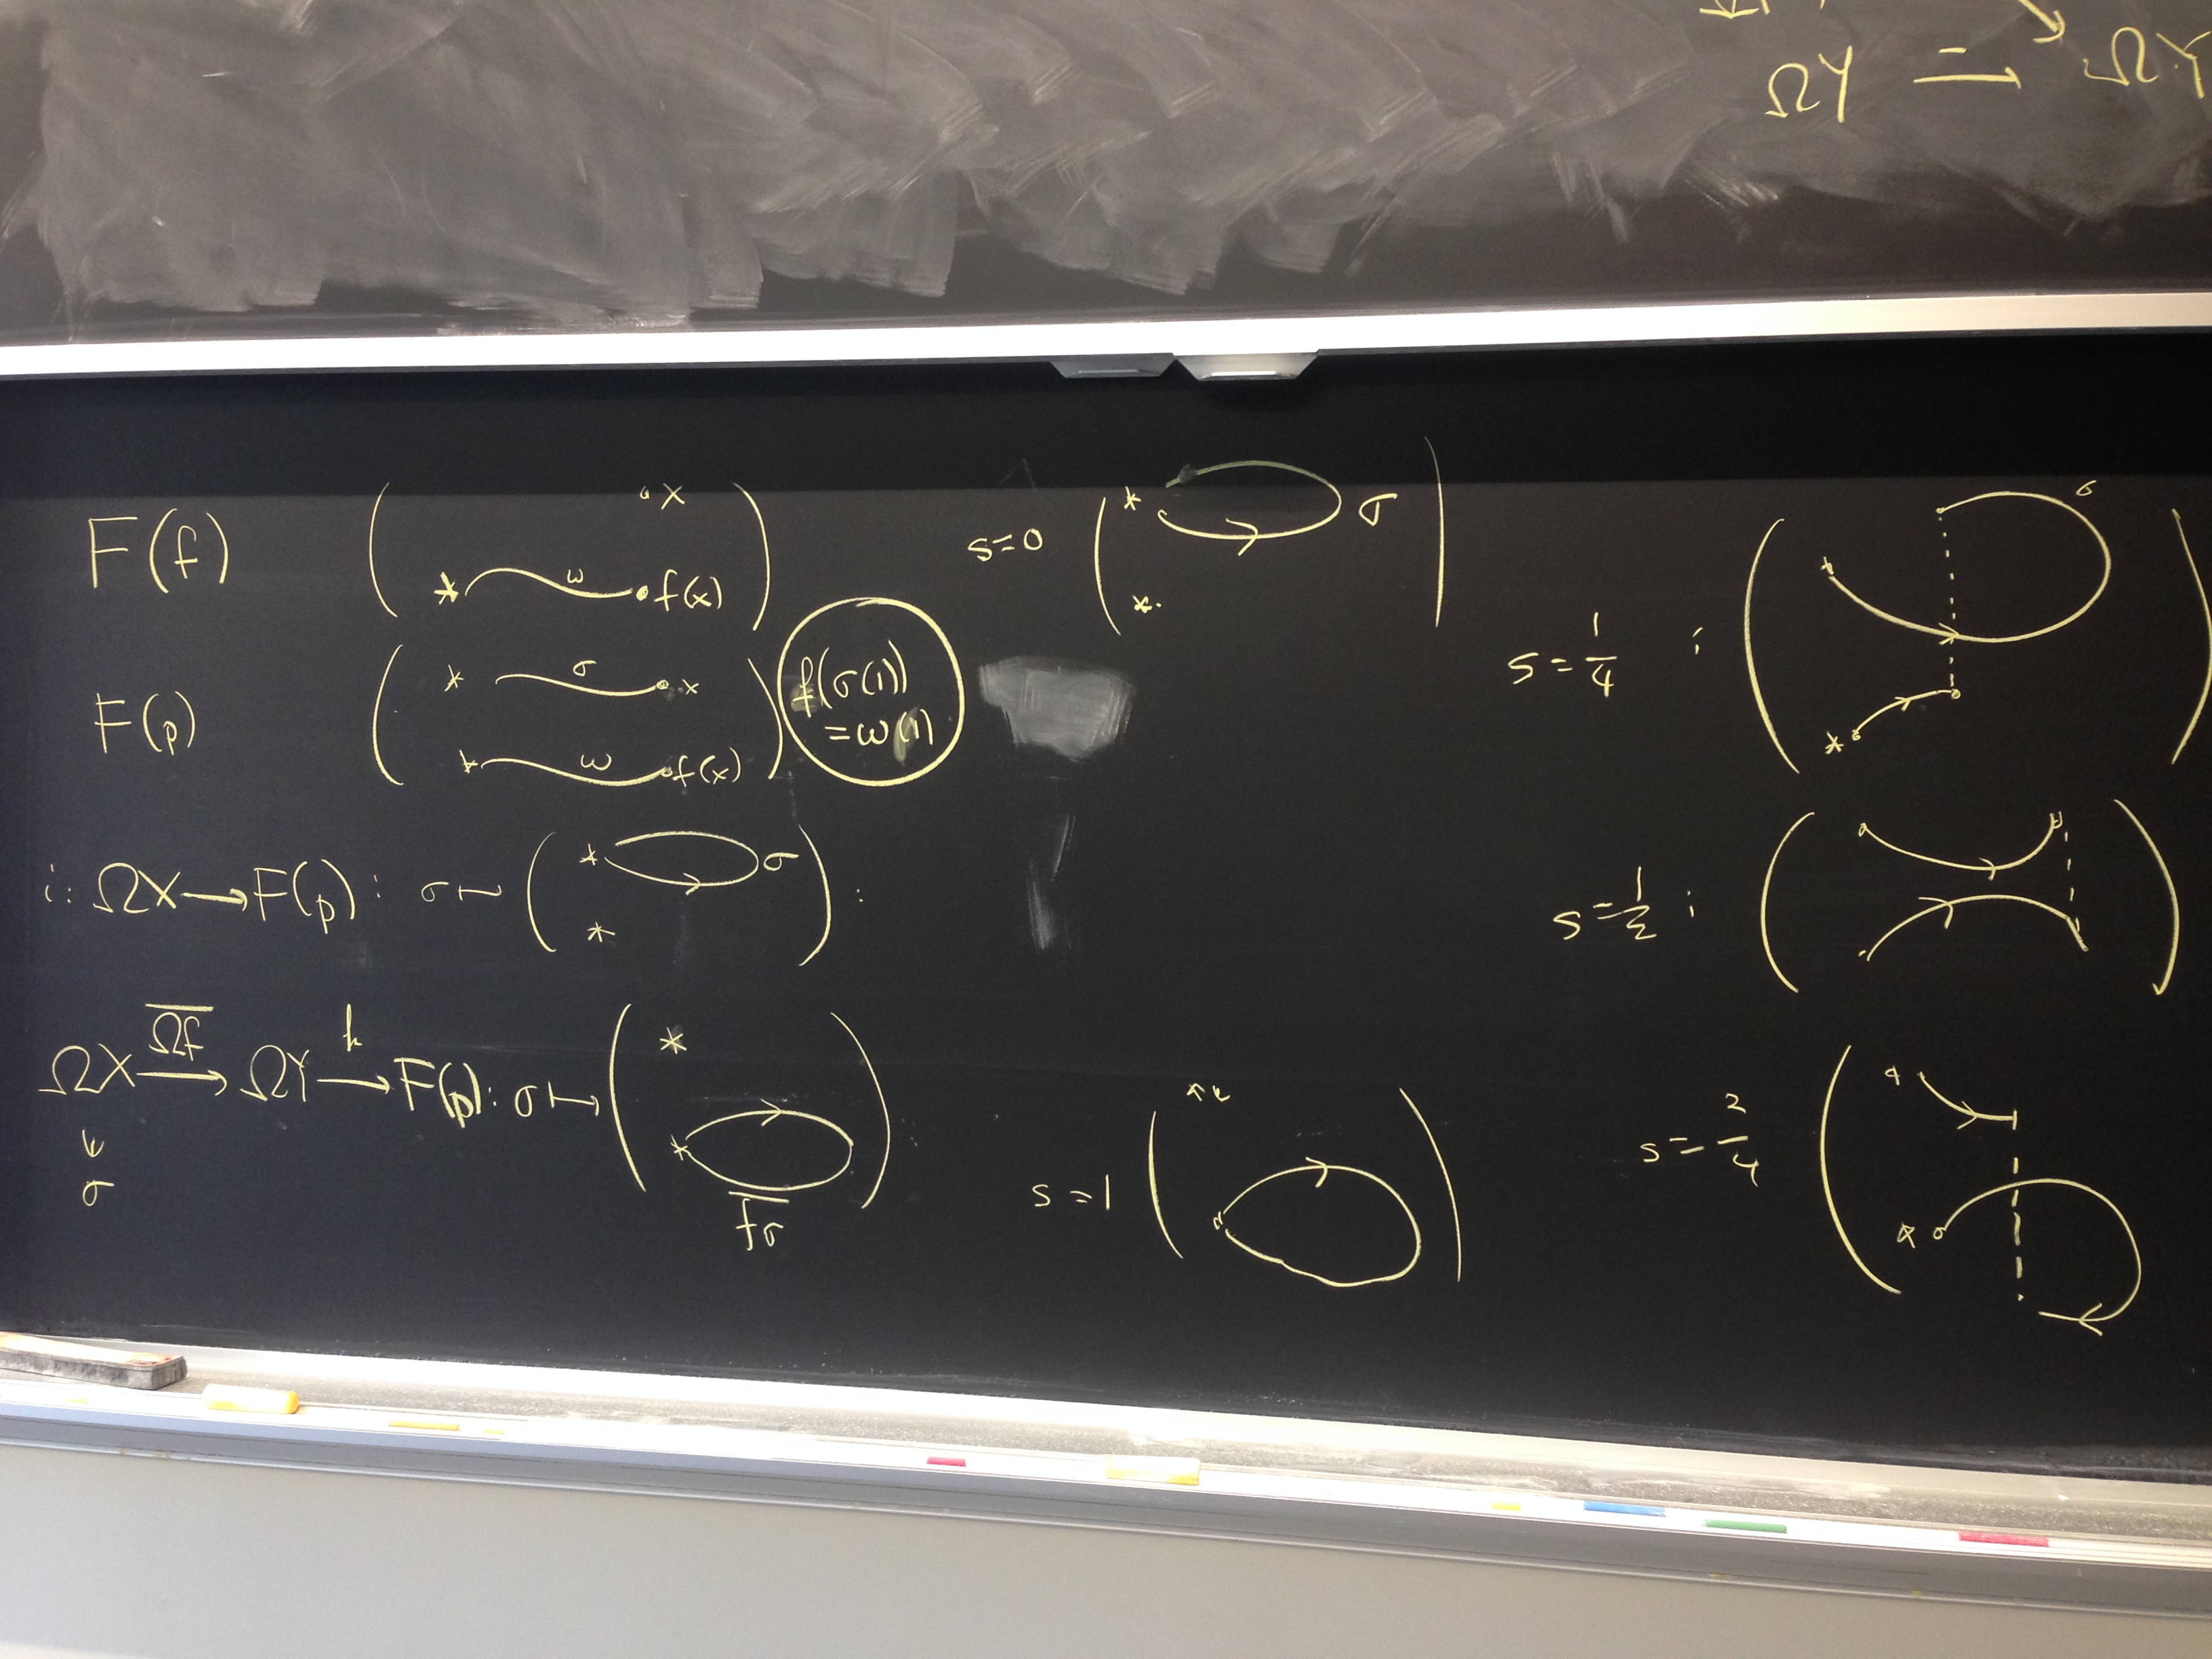 ΩY → ΩY
F(f) ( x * ω f(x) )
F(p) ( * σ x * ω f(x) ) f(σ(1)) = ω(1)
i: ΩX → F(p): σ ↦ ( * σ * ) :
ΩX \overline{Ωf} → ΩY → F(p): σ ↦ ( * * \overline{fσ} )
σ
s=0 ( * σ * )
s=1
s=1/4 : ( σ * )
s=1/2 :
s=2/4